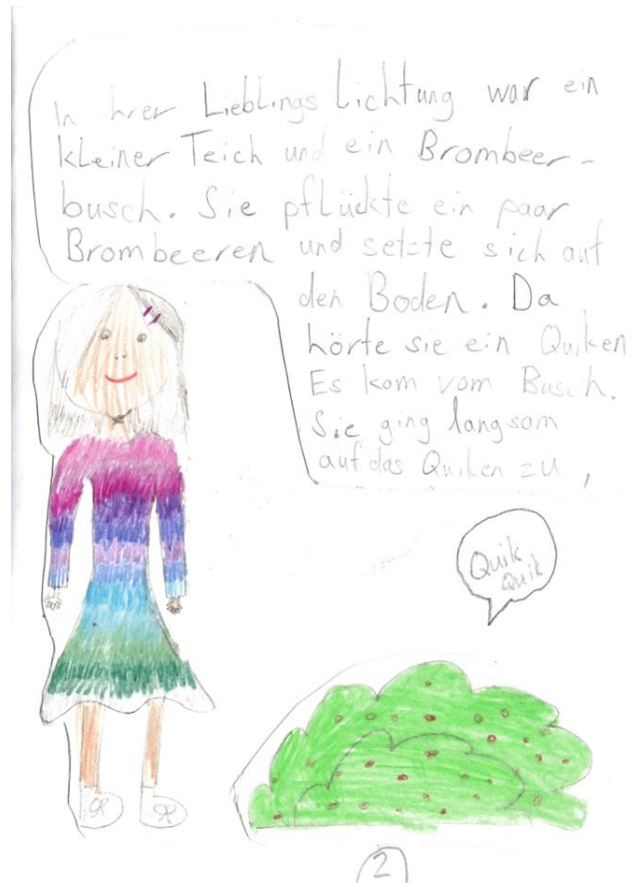 In ihrer Lieblings Lichtung war ein
kleiner Teich und ein Brombeer-
busch. Sie pflückte ein paar
Brombeeren und setzte sich auf
den Boden. Da
hörte sie ein Quiken
Es kam vom Busch.
Sie ging langsam
auf das Quiken zu,
Quik
Quik
2